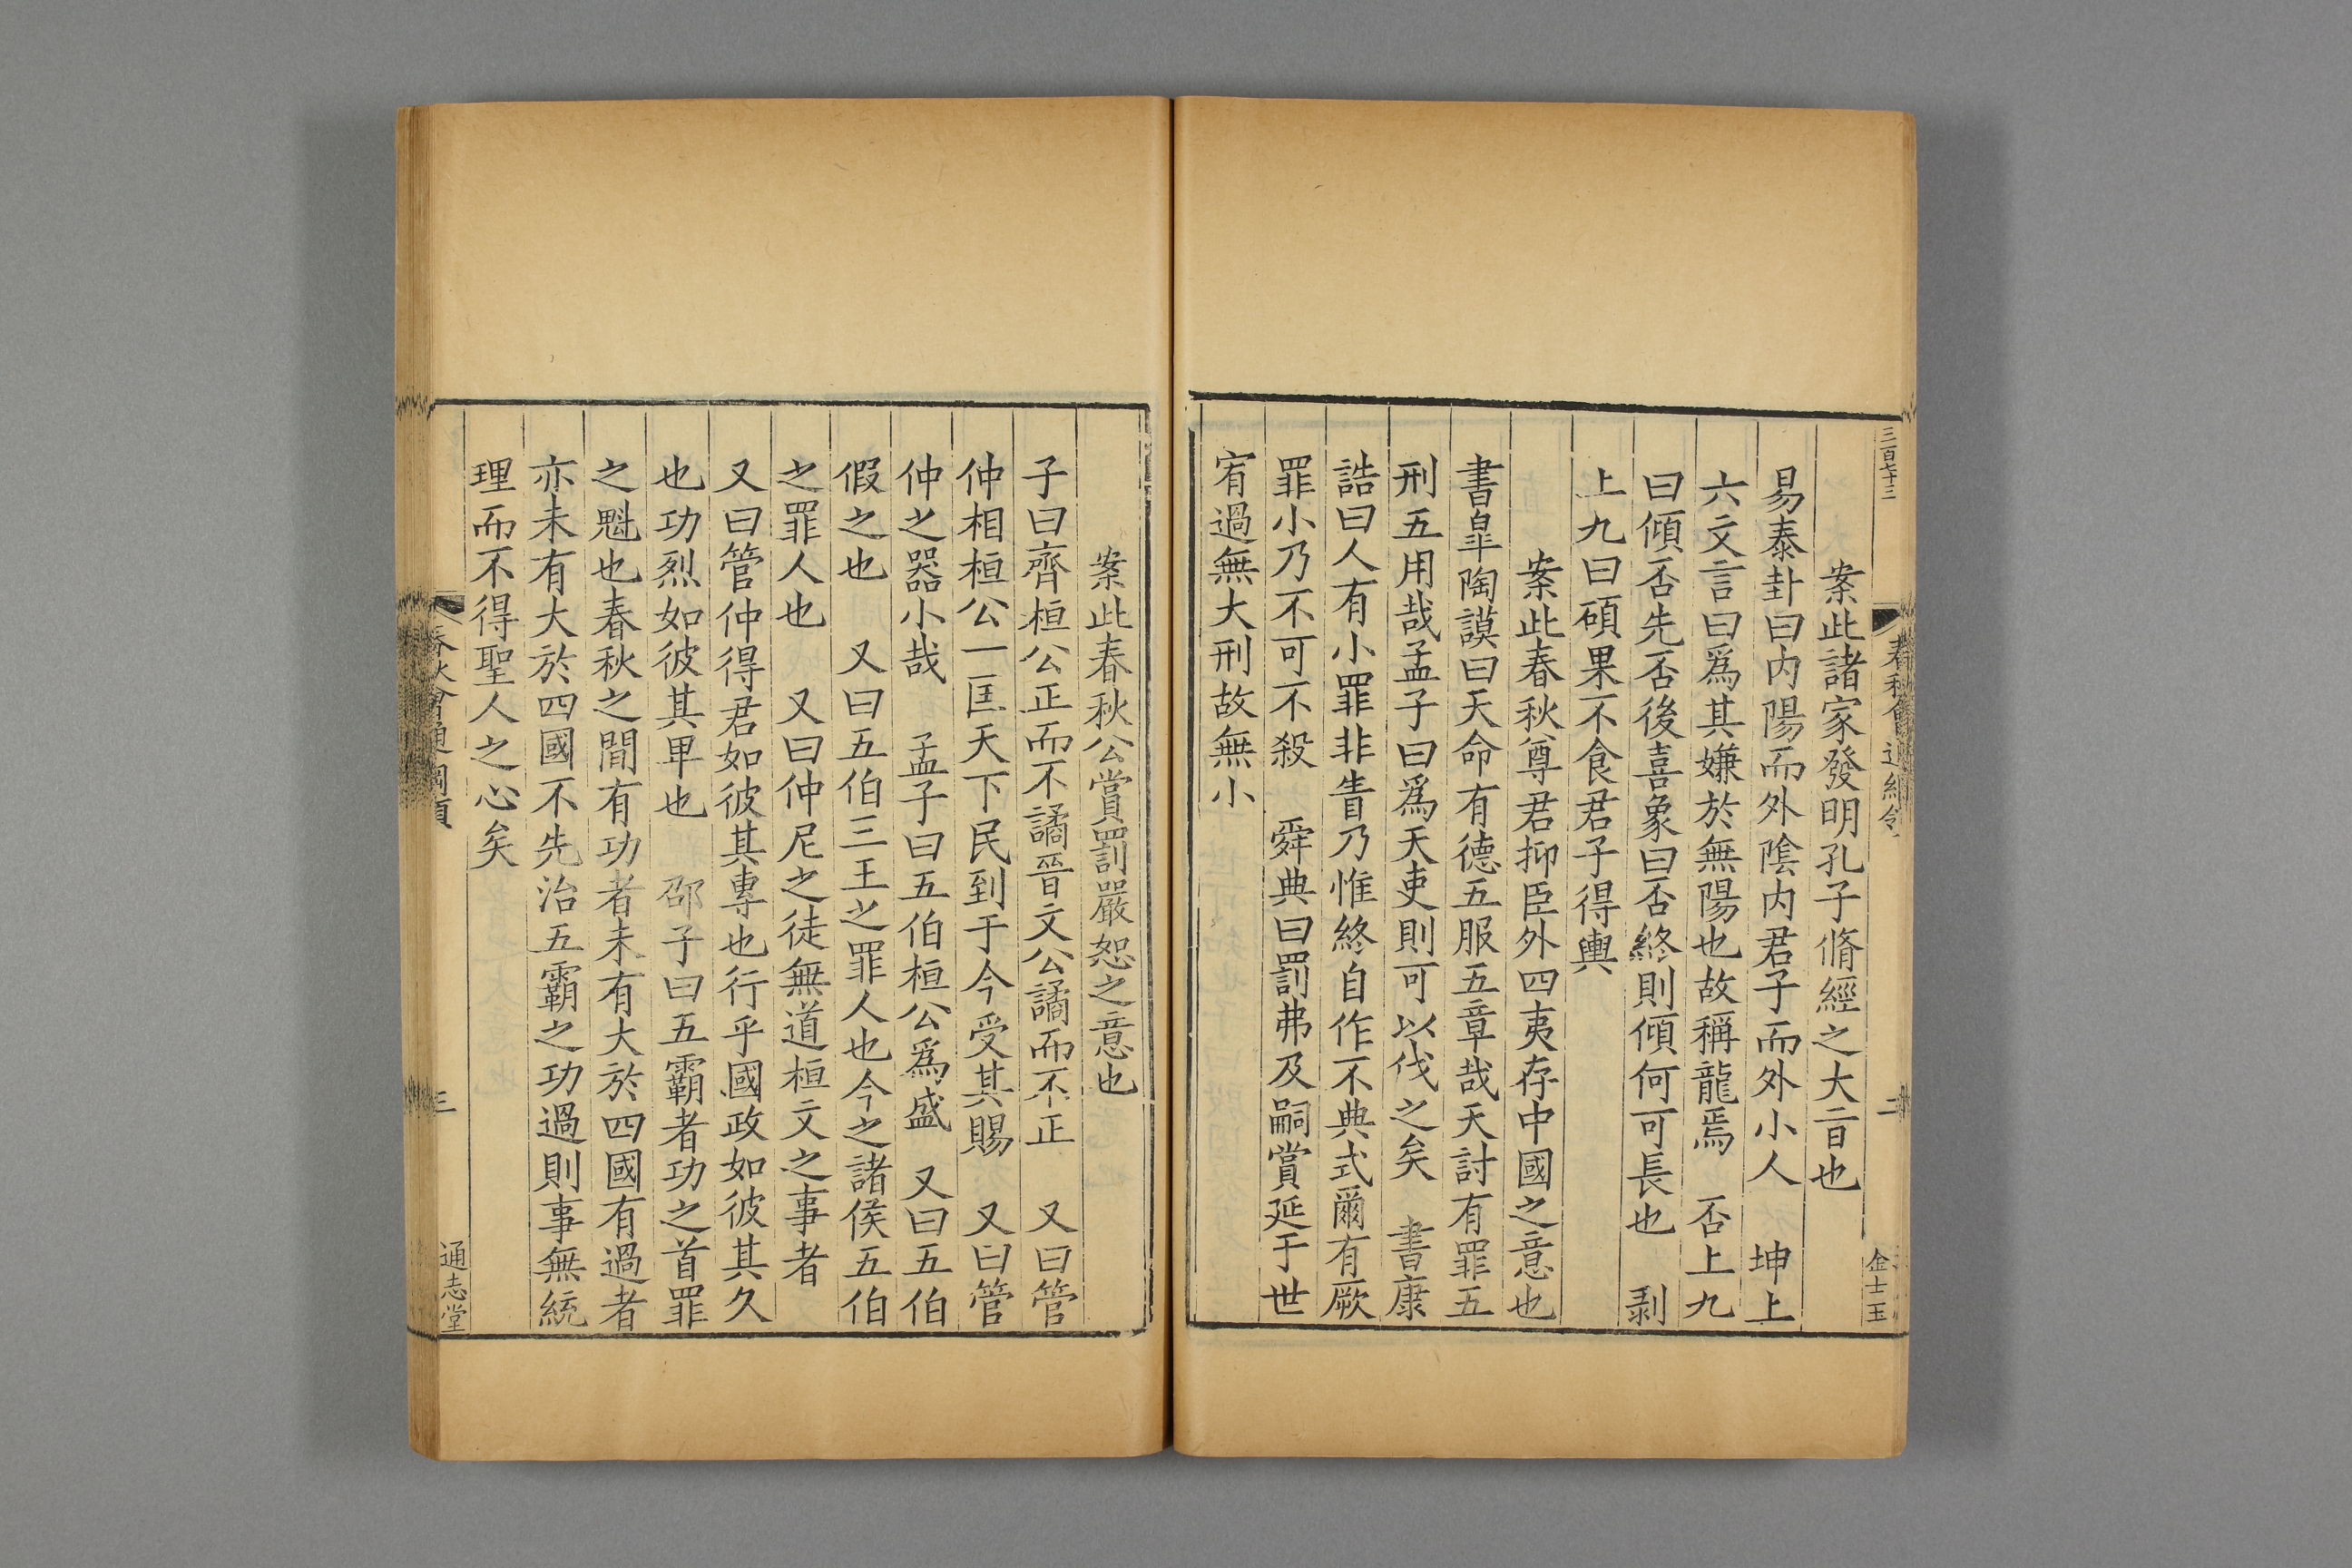 三百七十三
案此諸家發明孔子脩經之大㫖也
易泰卦曰内陽而外隂内君子而外小人　坤上
六文言曰爲其嫌於無陽也故稱龍焉　否上九
曰傾否先否後喜象曰否終則傾何可長也　剥
上九曰碩果不食君子得輿
案此春秋尊君抑臣外四夷存中國之意也
書臯陶謨曰天命有德五服五章哉天討有罪五
刑五用哉孟子曰爲天吏則可以伐之矣　書康
誥曰人有小罪非眚乃惟終自作不典式爾有厥
罪小乃不可不殺　舜典曰罰弗及嗣賞延于世
宥過無大刑故無小
春秋會通綱領
二
金士玉
案此春秋公賞罰嚴恕之意也
子曰齊桓公正而不譎晉文公譎而不正　又曰管
仲相桓公一匡天下民到于今受其賜　又曰管
仲之器小哉　孟子曰五伯桓公爲盛　又曰五伯
假之也　又曰五伯三王之罪人也今之諸侯五伯
之罪人也　又曰仲尼之徒無道桓文之事者
又曰管仲得君如彼其專也行乎國政如彼其久
也功烈如彼其卑也　邵子曰五霸者功之首罪
之魁也春秋之間有功者未有大於四國有過者
亦未有大於四國不先治五霸之功過則事無統
理而不得聖人之心矣
春秋會通綱領
三
通志堂